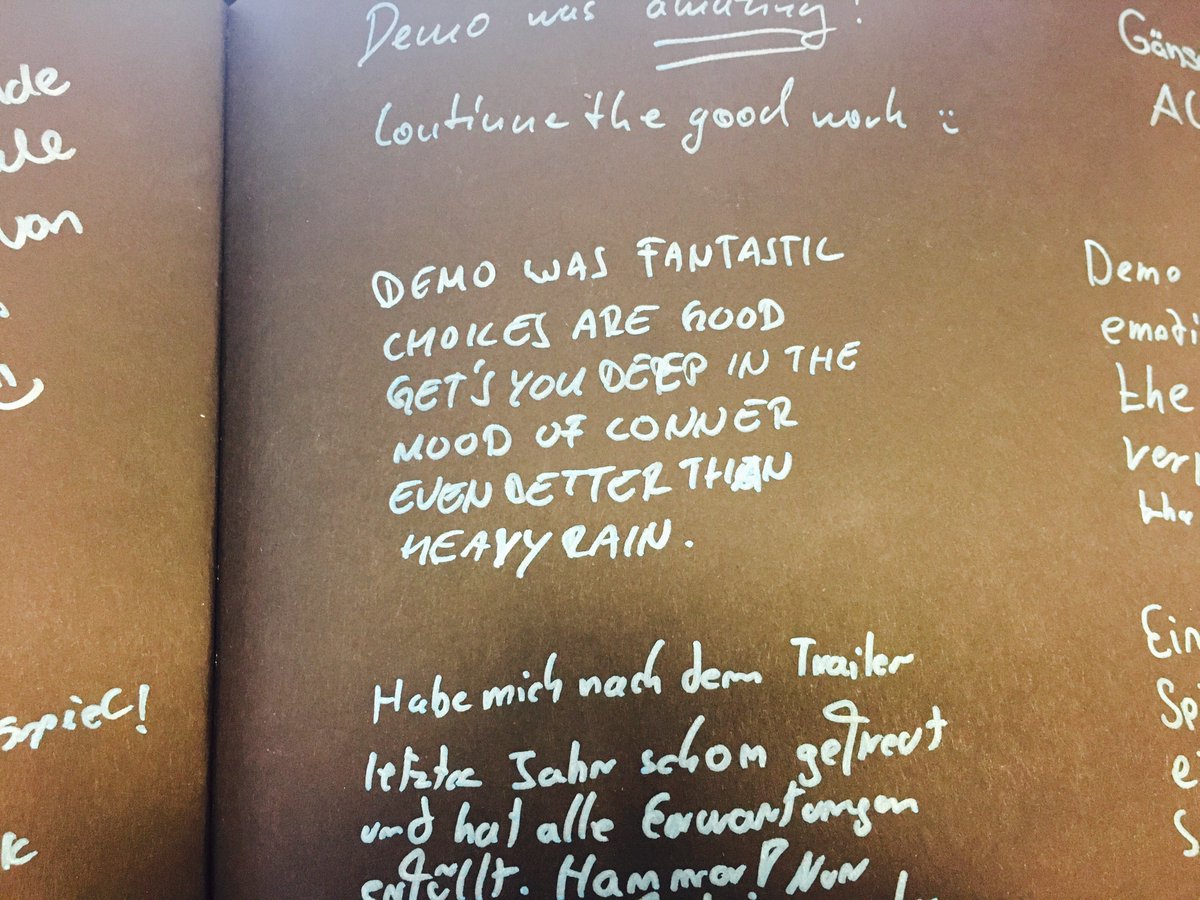 Demo was amazing!
Continue the good work :)
DEMO WAS FANTASTIC
CHOICES ARE GOOD
GET'S YOU DEEP IN THE
MOOD OF CONNER
EVEN BETTER THAN
HEAVY RAIN.
Habe mich nach dem Trailer
letzte Jahr schon gefreut
und hat alle Erwartungen
erfüllt. Hammer! Nur
von
spiel!
Demo
emoti
the
ver
the
Ein
Sp